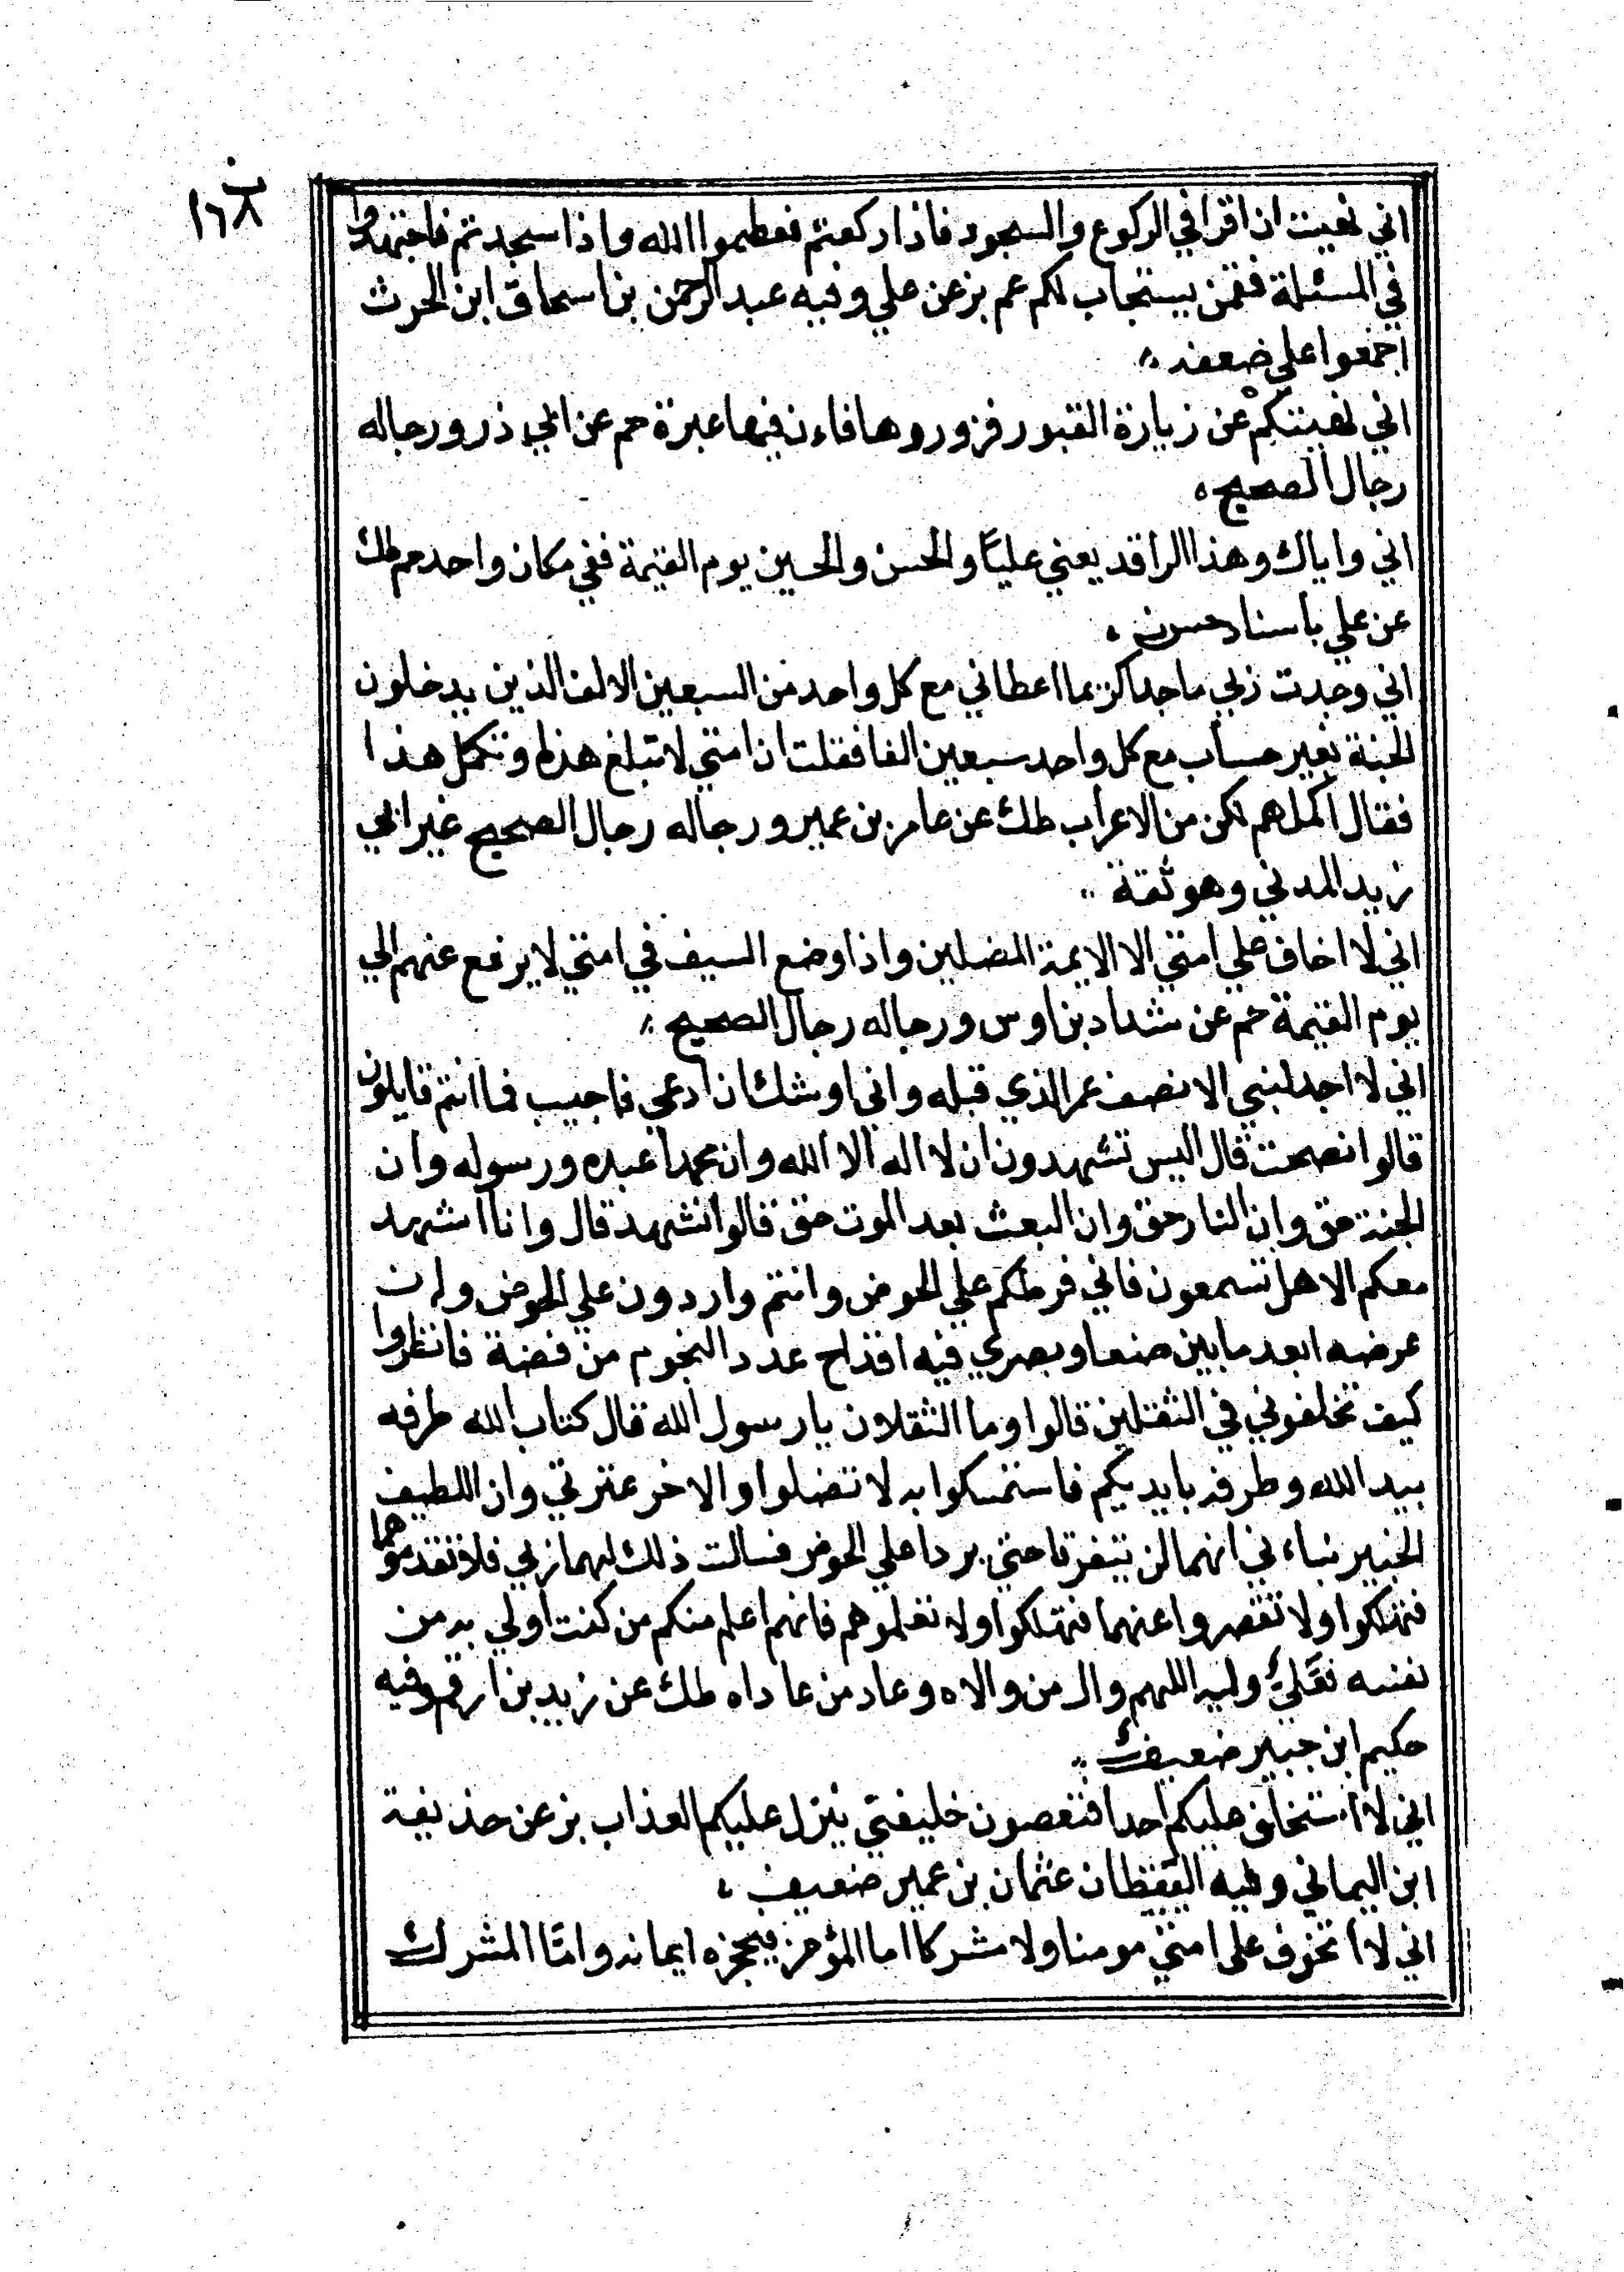 ١٦٨
اني نهيت ان اقرا في الركوع والسجود فاذا ركعتم فعظموا الله واذا سجدتم فاجتهدوا
في المسئلة فقمن يستجاب لكم عم بز عن علي وفيه عبد الرحمن بن اسحاق ابن الحرث
اجمعوا علي ضعفه
اني نهيتكم عن زيارة القبور فزوروها فاءن فيها عبرة حم عن ابي ذر ورجاله
رجال الصحيح
اني واياك وهذا الراقد يعني عليًا والحسن والحسين يوم القيمة ففي مكان واحد حم طك
عن علي باسناد حسن
اني وجدت ربي ماجدا كريما اعطاني مع كل واحد من السبعين الالف الذين يدخلون
الجنة بغير حساب مع كل واحد سبعين الفا فقلت ان امتي لا تبلغ هذا وتكمل هذا
فقال اكملهم لكن من الاعراب طك عن عامر بن عمير ورجاله رجال الصحيح غير ابي
زيد المدني وهو ثقة
اني لا اخاف علي امتي الا الايمة المضلين واذا وضع السيف في امتي لا يرفع عنهم الي
يوم القيمة حم عن شداد بن اوس ورجاله رجال الصحيح
اني لا اجد لنبي الا نصف عمر الذي قبله واني اوشك ان ادعي فاجيب فما انتم قايلون
قالوا نصحت قال اليس تشهدون ان لا اله الا الله وان محمدا عبده ورسوله وان
الجنة حق وان النار حق وان البعث بعد الموت حق قالوا نشهد قال وانا اشهد
معكم الا هل تسمعون فاني فرطكم علي الحوض وانتم واردون علي الحوض وان
عرضه ابعد ما بين صنعا وبصري فيه اقداح عدد النجوم من فضة فانظروا
كيف تخلفوني في الثقلين قالوا وما الثقلان يا رسول الله قال كتاب الله طرفه
بيد الله وطرفه بايديكم فاستمسكوا به لا تضلوا والاخر عترتي وان اللطيف
الخبير نباءني انهما لن يتفرقا حتي يردا علي الحوض فسالت ذلك لهما ربي فلا تقدموهما
فتهلكوا ولا تقصروا عنهما فتهلكوا ولا تعلموهم فانهم اعلم منكم من كنت اولي به من
نفسه فعلي وليه اللهم وال من والاه وعاد من عاداه طك عن زيد بن ارقم وفيه
حكيم ابن جبير ضعيف
اني لا استخلف عليكم احدا فتعصون خليفتي ينزل عليكم العذاب بز عن حذيفة
ابن اليماني وفيه اليقظان عثمان بن عمير ضعيف
اني لا اتخوف على امتي مومنا ولا مشركا اما المؤمن فيحجزه ايمانه وامّا المشرك